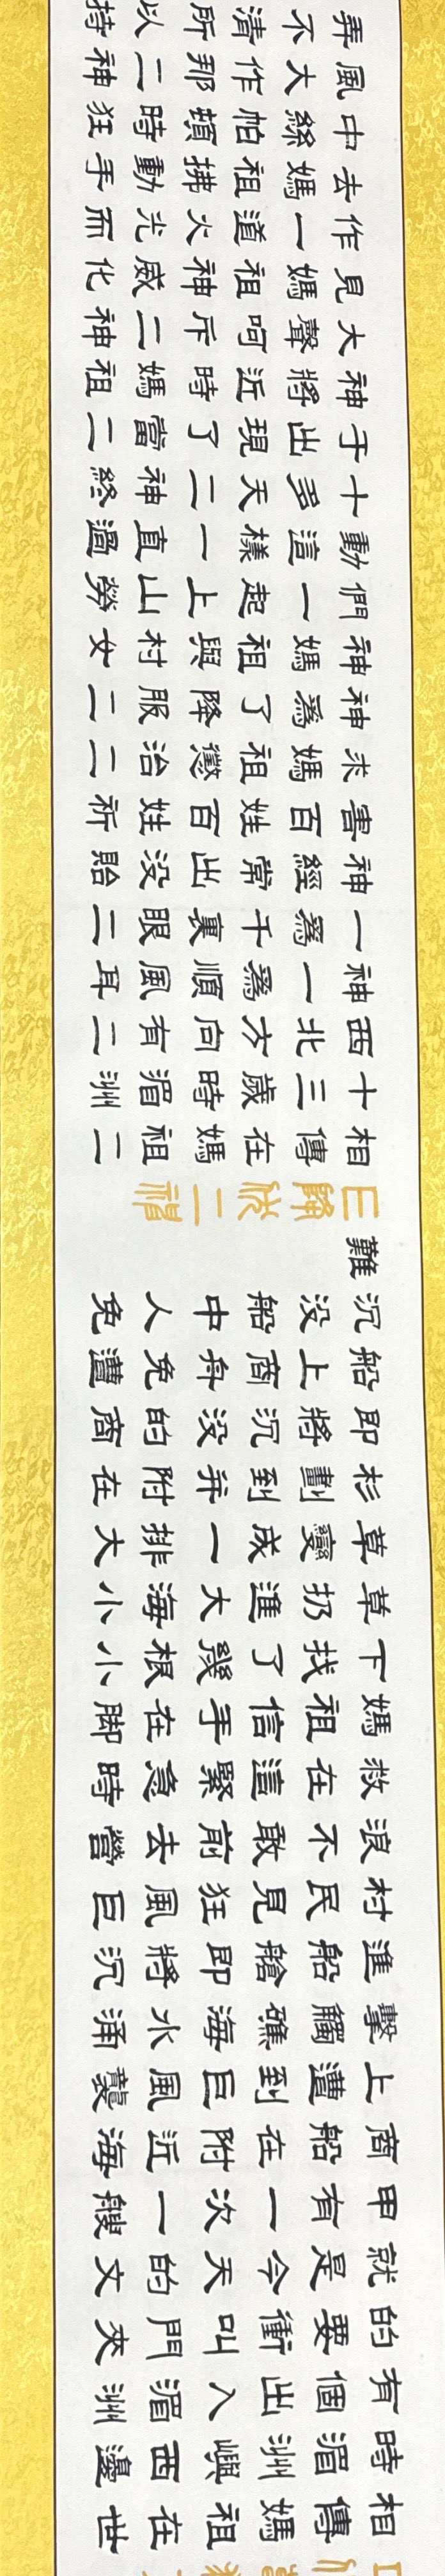 相傳媽祖在世
時湄洲嶼西邊
有個出入湄洲
的要衝叫門夾
就是今天的文
甲有一次一艘
商船在附近海
上遭到巨風襲
擊觸礁海水涌
進船艙即將沉
村民見狂風巨
浪不敢前去營
救在這緊急時
媽祖信手在脚
下找了幾根小
草扔進大海小
草變成一排大
杉劃到并附在
即將沉没的商
船上商舟免遭
沉没船中人免
難
二
相傳在媽祖二
十三歲時湄洲
西北方向有二
神一爲順風耳
一爲千裏眼二
神經常出没貽
害百姓百姓祈
求媽祖懲治二
神媽祖降服二
神爲了與村女
們一起上山勞
動這樣一直過
十多天二神終
于出現了當二
神將近時媽祖
大聲呵斥二神
見媽祖神威化
作一道火光而
去媽祖拂動手
中絲帕頓時狂
風大作那二神
弄不清所以持